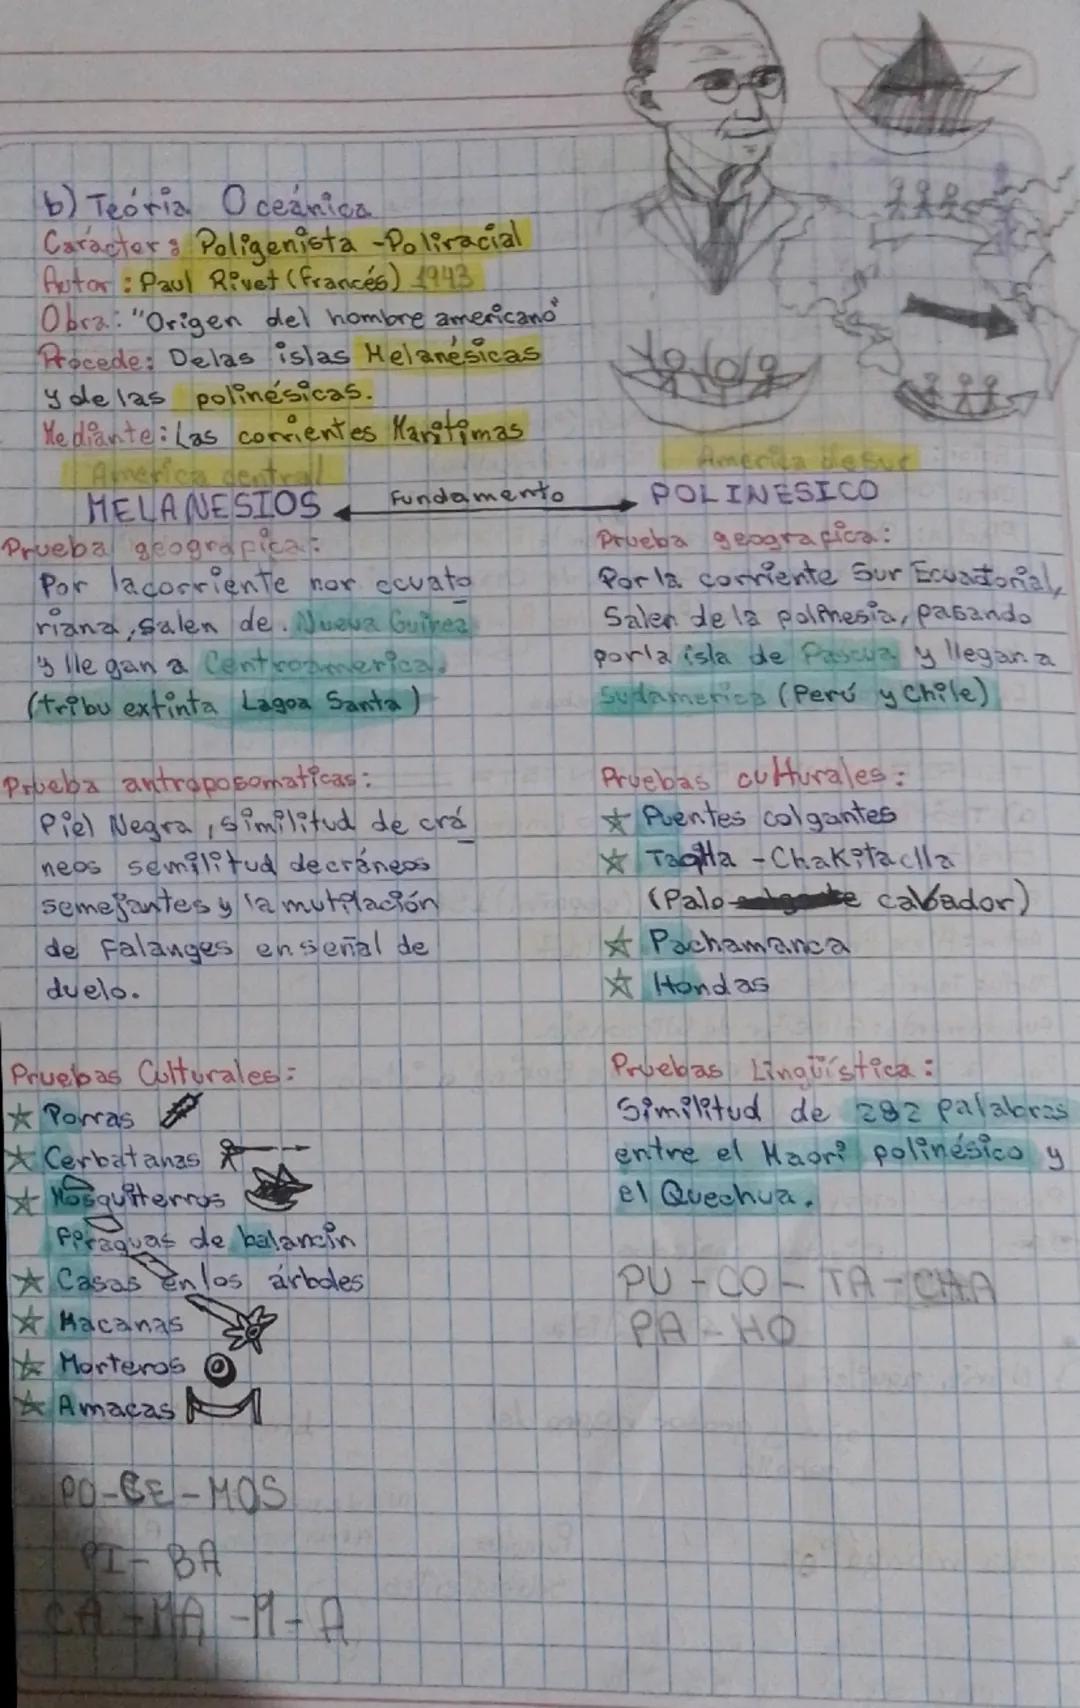 b) Teória Oceánica
Carácter: Poligenista - Poliracial
Autor: Paul Rivet (francés) 1943
Obra: "Origen del hombre americano"
Procede: Delas islas Melanésicas
y de las polinésicas.
Mediante: Las corrientes Marítimas
America central
MELANESIOS
Fundamento
America de sur
POLINESICO
Prueba geografica:
Por la corriente nor ecuato
riana, salen de. Nueva Guinea
y llegan a Centroamerica.
(tribu extinta Lagoa Santa)
Prueba geografica:
Por la corriente Sur Ecuatorial,
Salen de la polinesia, pasando
por la isla de Pascua y llegan a
Sudamerica (Perú y Chile)
Prueba antroposomaticas:
Piel Negra, similitud de crá
neos semilitud de cráneos
semejantes y la mutilación
de falanges en señal de
duelo.
Pruebas culturales:
Puentes colgantes
Taqlla - Chakitaclla
(Palo cabador)
Pachamanca
Hondas
Pruebas Culturales:
Porras
Cerbatanas
Mosquiterros
Piraguas de balancin
Casas en los árboles
Macanas
Morteros
Amacas
Pruebas Lingüística:
Similitud de 282 palabras
entre el Maori polinésico y
el Quechua.
PU - CO - TA - CHA
PA - HO
PO - CE - MOS
PI - BA
CA - MA - M - A